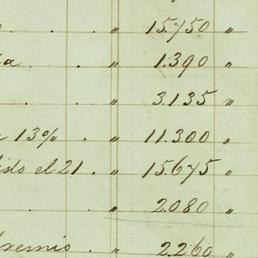 . . . " 15.750 "
a . . " 1.390 "
. . " 3.135 "
13% . " 11.300 "
el 21 . " 15.675 "
" 2.080 "
premio . " 2.260 "